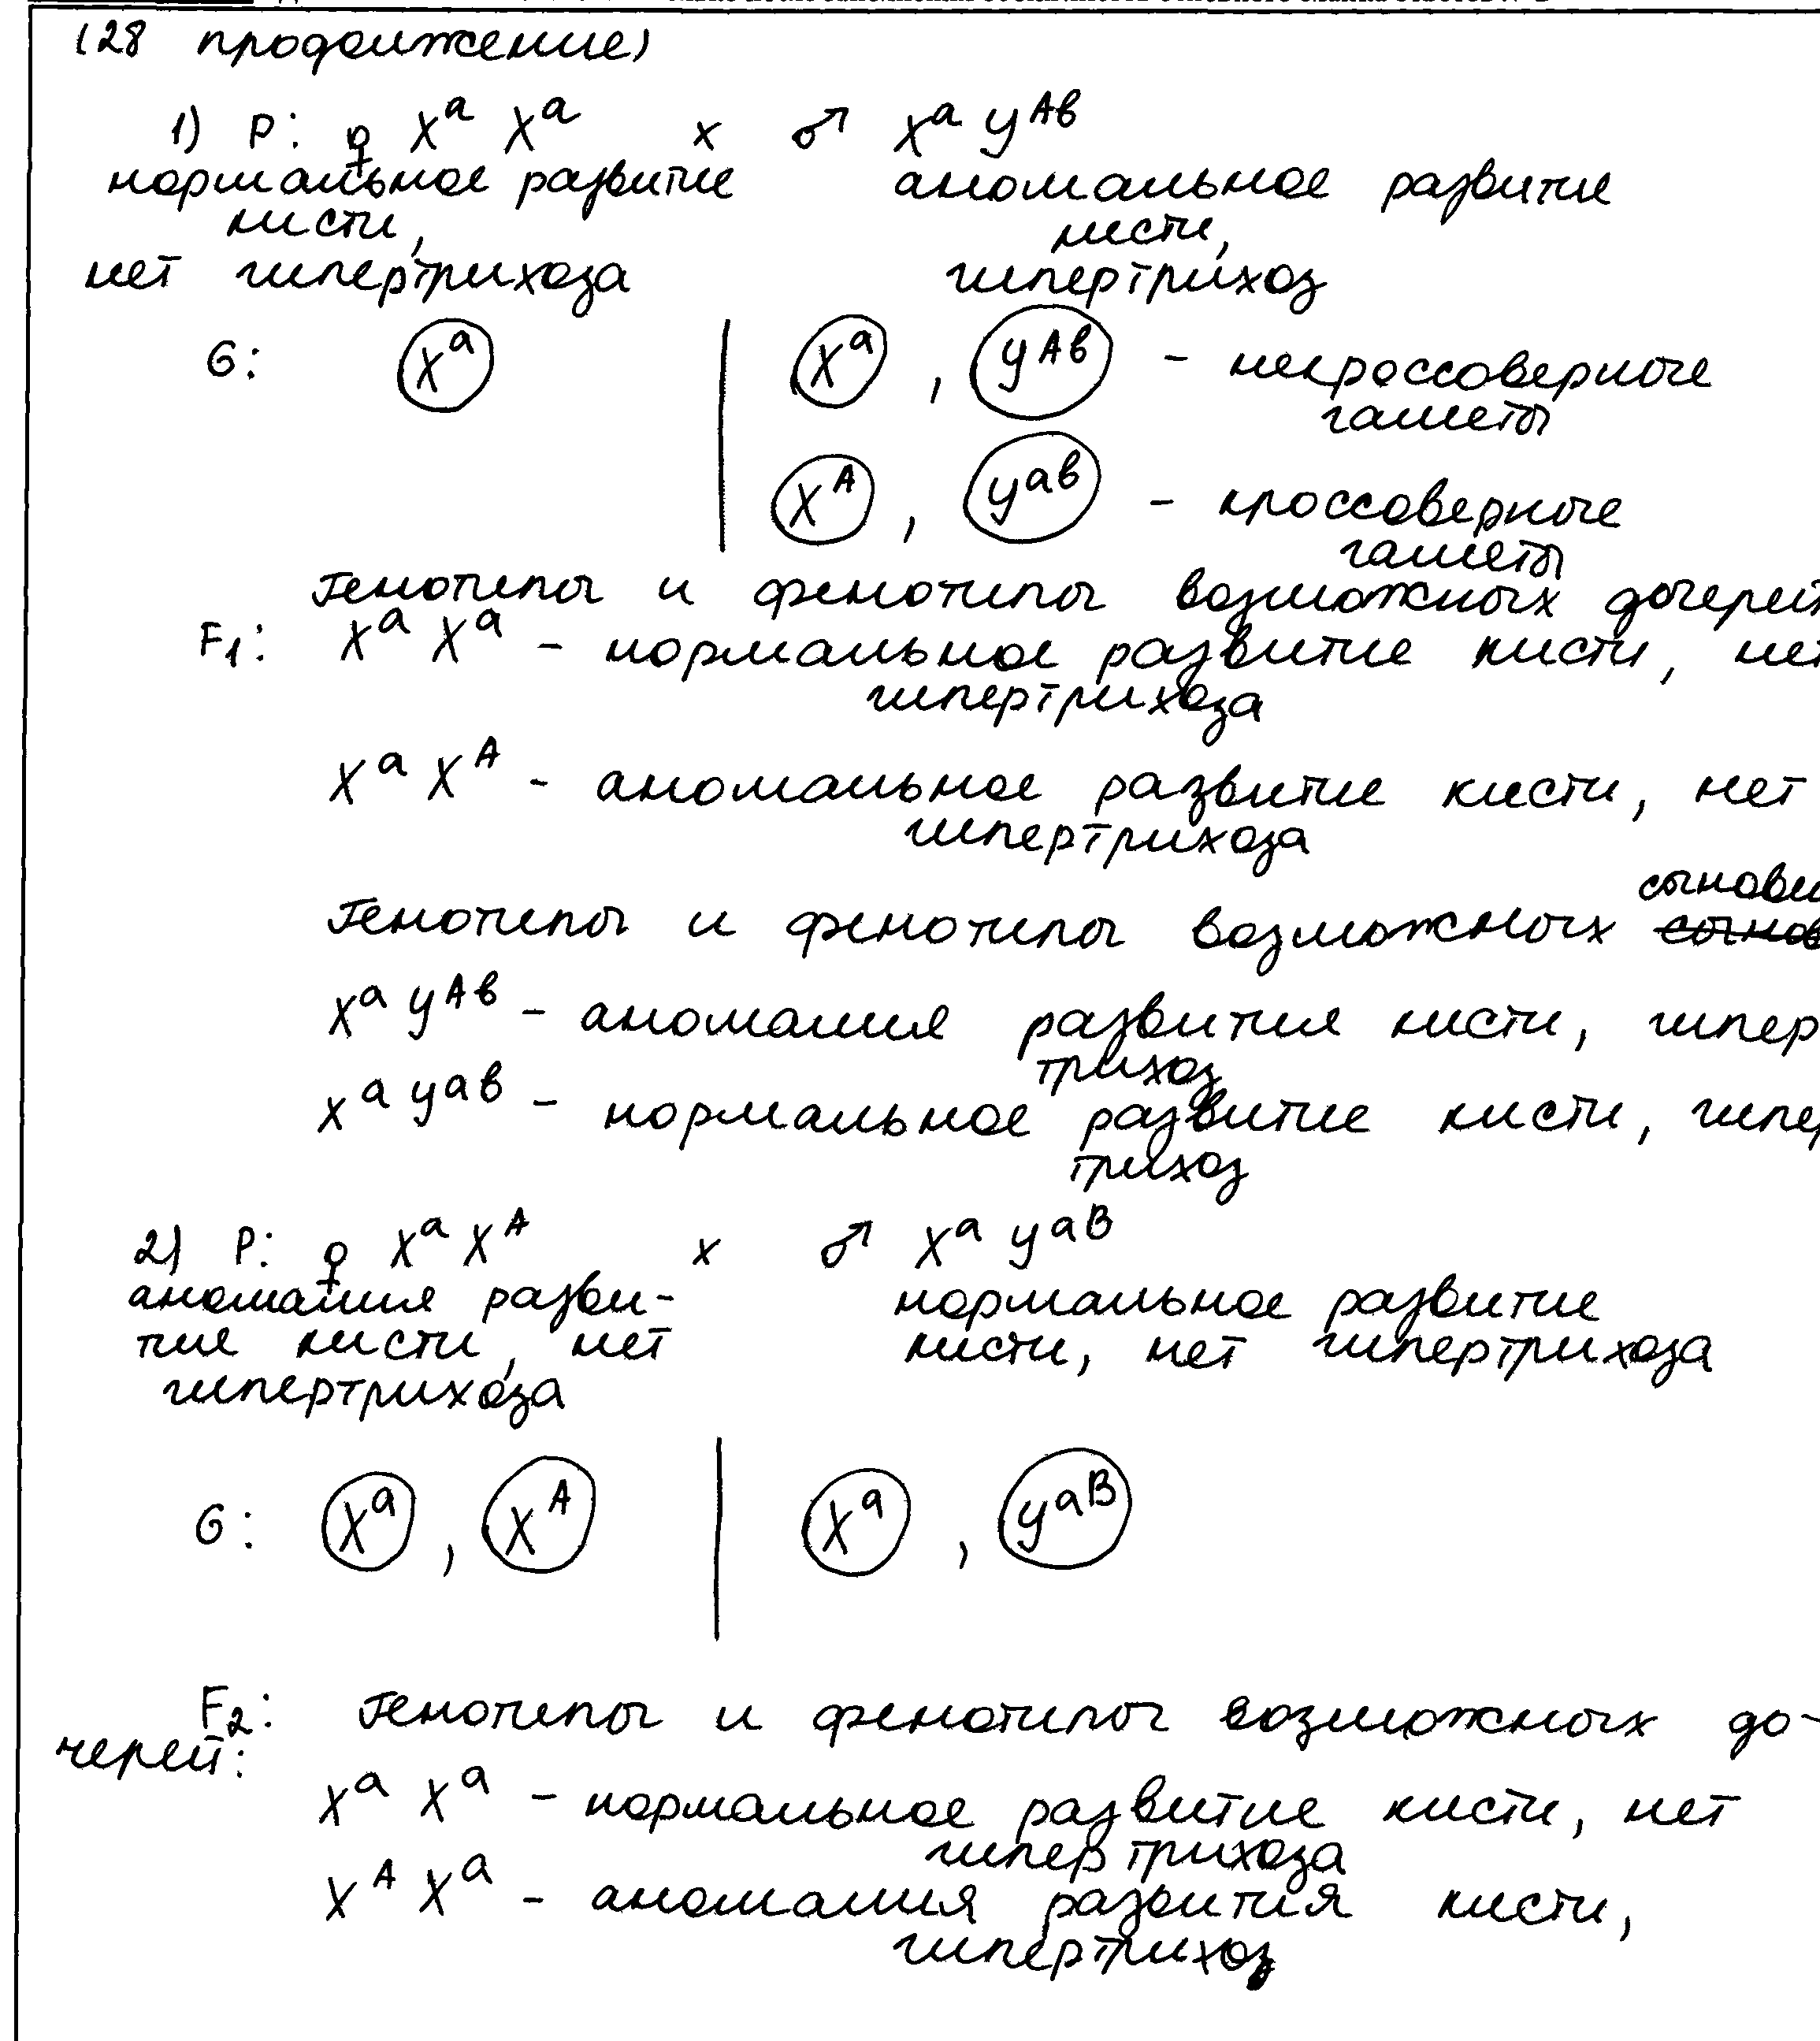 (28 продолжение)
1) P: ♀ Xᵃ Xᵃ x ♂ Xᵃ Yᴬᵇ
нормальное развитие аномальное развитие
кисти, кисти,
нет гипертрихоза гипертрихоз
G: Xᵃ | Xᵃ , Yᴬᵇ - некроссоверные
гаметы
Xᴬ , Yᵃᵇ - кроссоверные
гаметы
Генотипы и фенотипы возможных дочерей
F₁: Xᵃ Xᵃ - нормальное развитие кисти, нет
гипертрихоза
Xᵃ Xᴬ - аномальное развитие кисти, нет
гипертрихоза
Генотипы и фенотипы возможных сынови
Xᵃ Yᴬᵇ - аномалия развития кисти, гипер
трихоз
Xᵃ Yᵃᵇ - нормальное развитие кисти, гипер
трихоз
2) P: ♀ Xᵃ Xᴬ x ♂ Xᵃ Yᵃᴮ
аномалия разви- нормальное развитие
тие кисти, нет кисти, нет гипертрихоза
гипертрихоза
G: Xᵃ , Xᴬ | Xᵃ , Yᵃᴮ
F₂: Генотипы и фенотипы возможных до-
черей:
Xᵃ Xᵃ - нормальное развитие кисти, нет
гипертрихоза
Xᴬ Xᵃ - аномалия развития кисти,
гипертрихоз